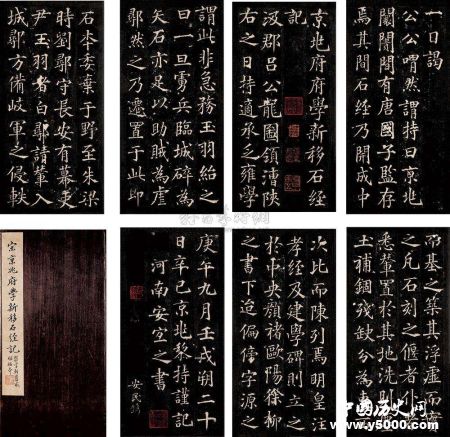 京兆府府學新移石經
記
汲郡呂公龍圖領漕陝
右之日持適承乏雍學
一日謁
公公喟然謂持曰京兆
闤闠間有唐國子監存
焉其間石經乃開成中
石本委棄于野至朱梁
時劉鄩守長安有幕吏
尹玉羽者白鄩請輦入
城鄩方備岐軍之侵軼
謂此非急務玉羽紿之
曰一旦虜兵臨城碎為
矢石亦足以助賊為虐
鄩然之乃遷置于此即
而基之築其浮虛而實
之凡石刻之偃者仆
悉輦置於其地洗剔
土補錮殘缺分為東
次比而陳列焉明皇注
孝經及建學碑則立之
於中央顏褚歐陽徐柳
之書下迨偏傍字源之
庚午九月壬戌朔二十
日辛巳京兆黎持謹記
河南安宜之書
安民鐫
宋京兆府學新移石經記
中国历史网
www.y5000.com